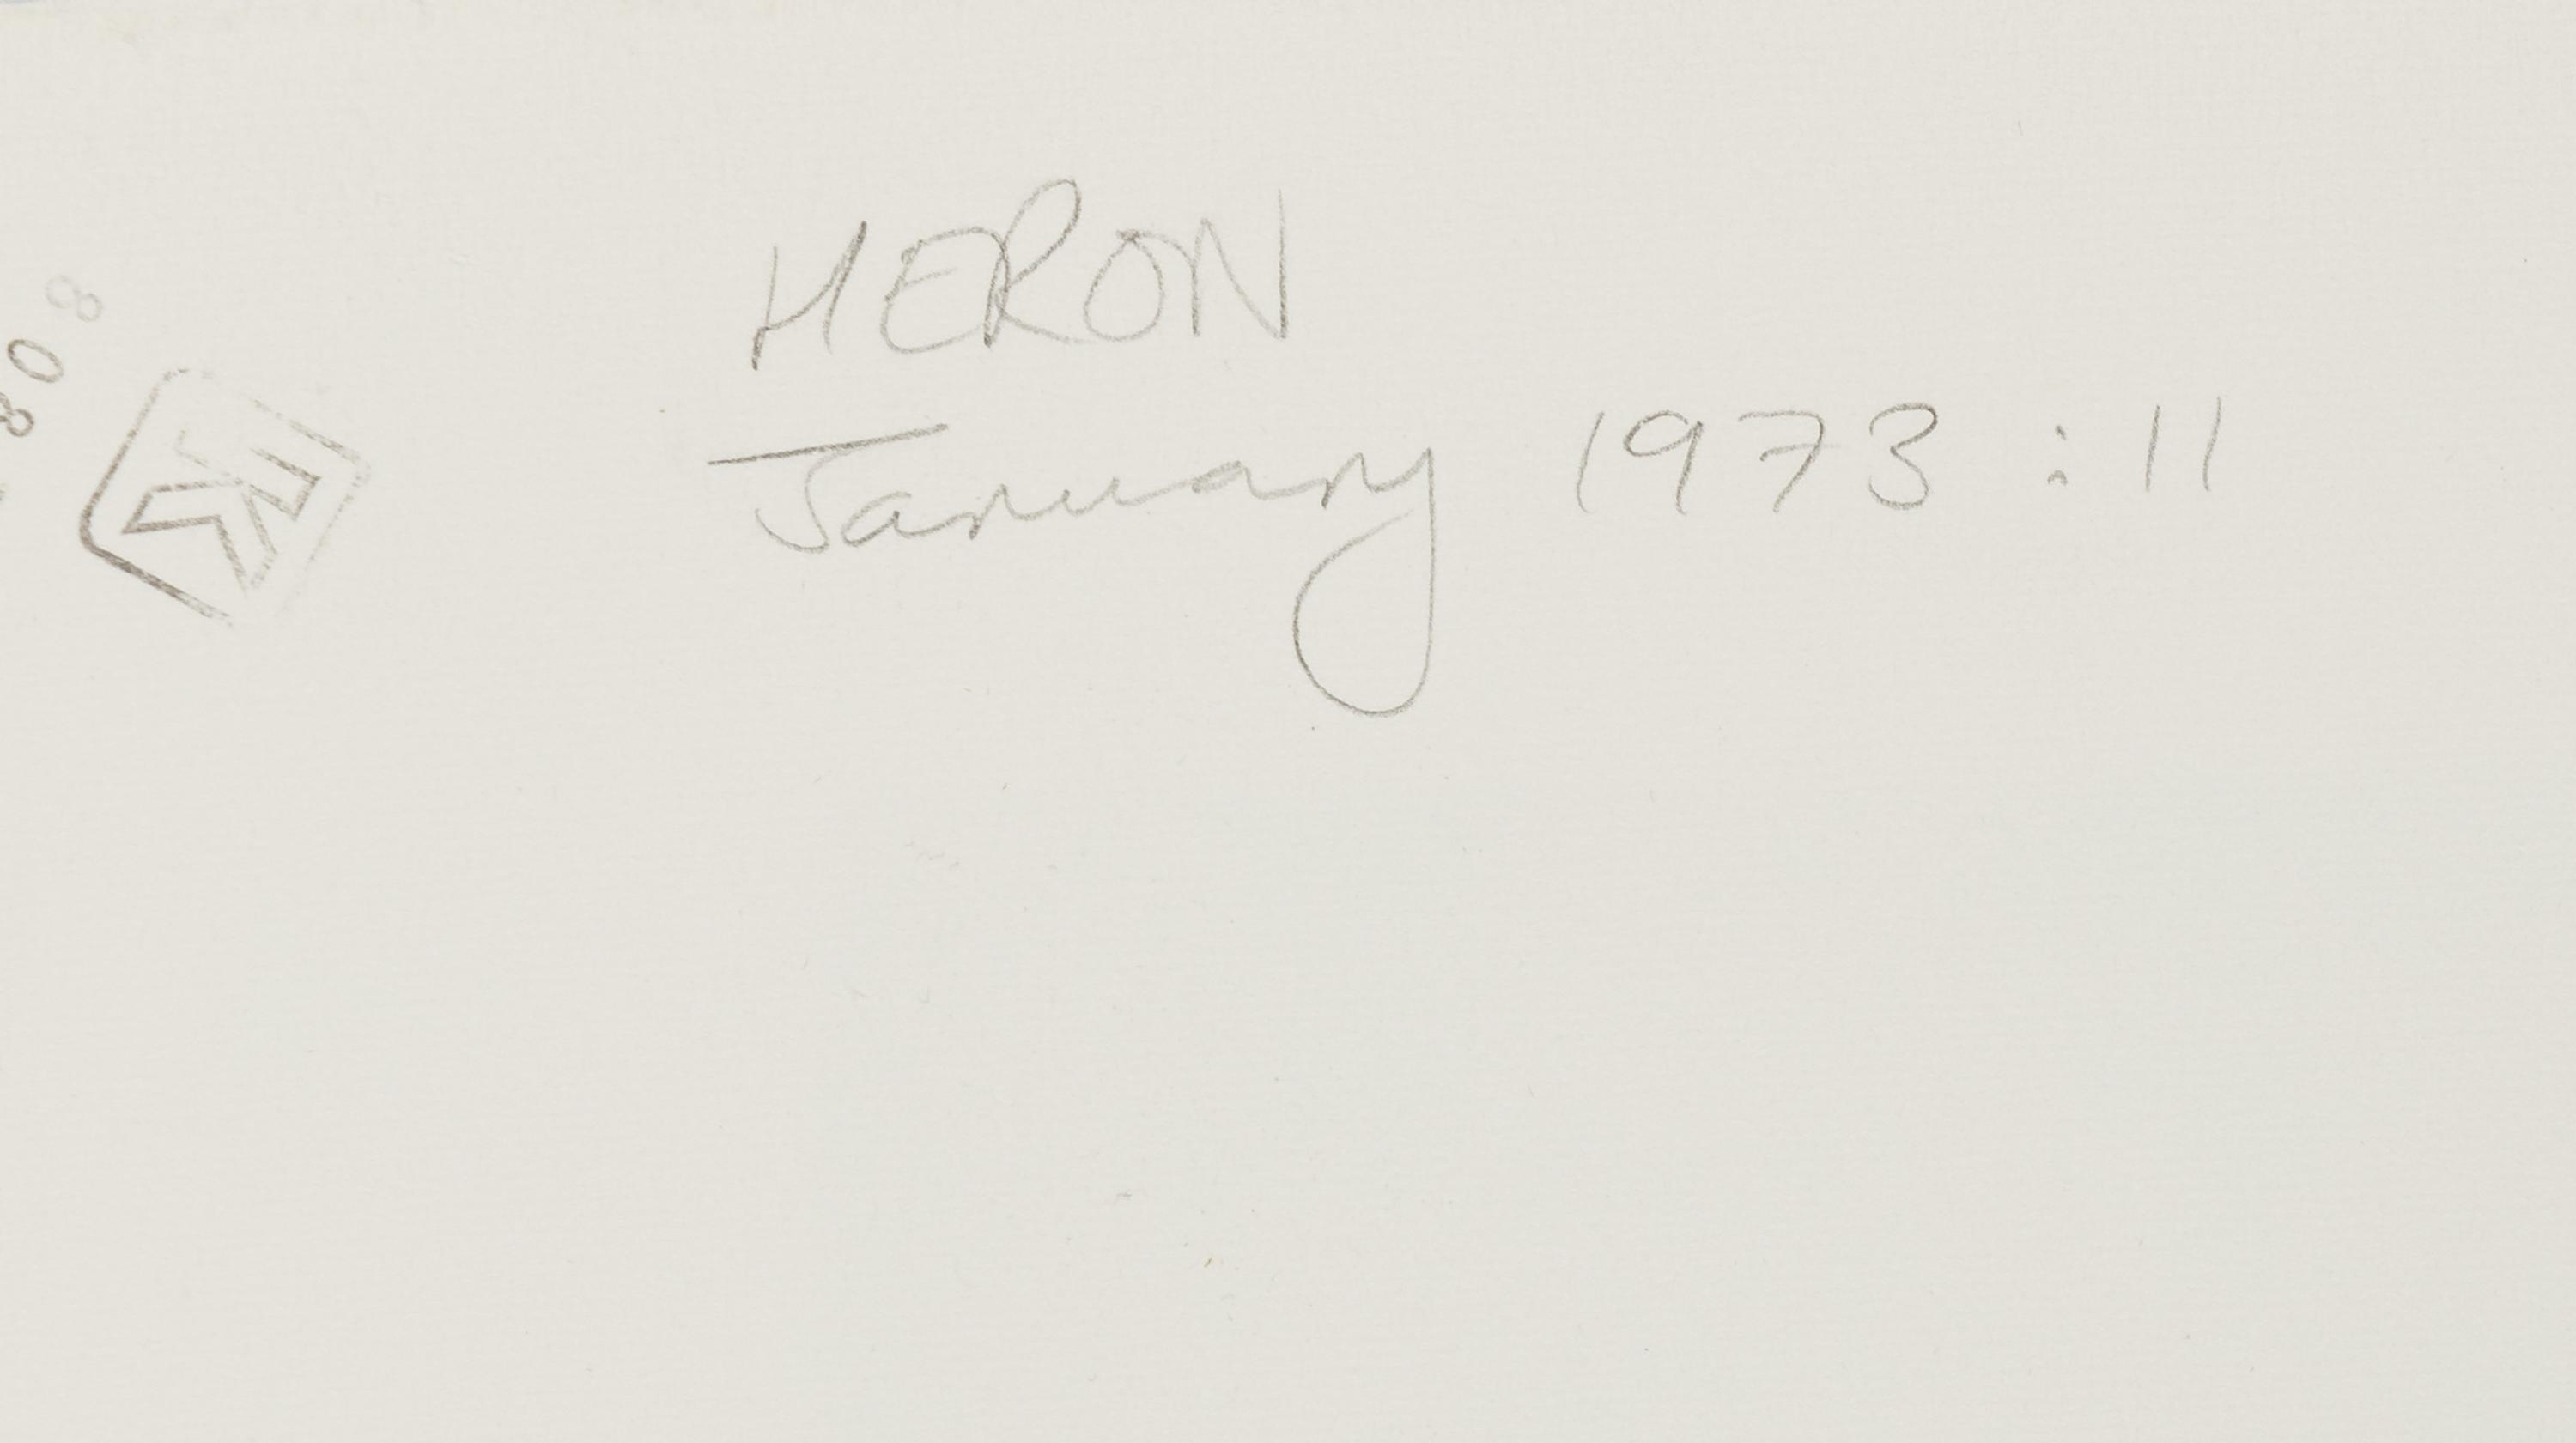 HERON
January 1973 : 11
808